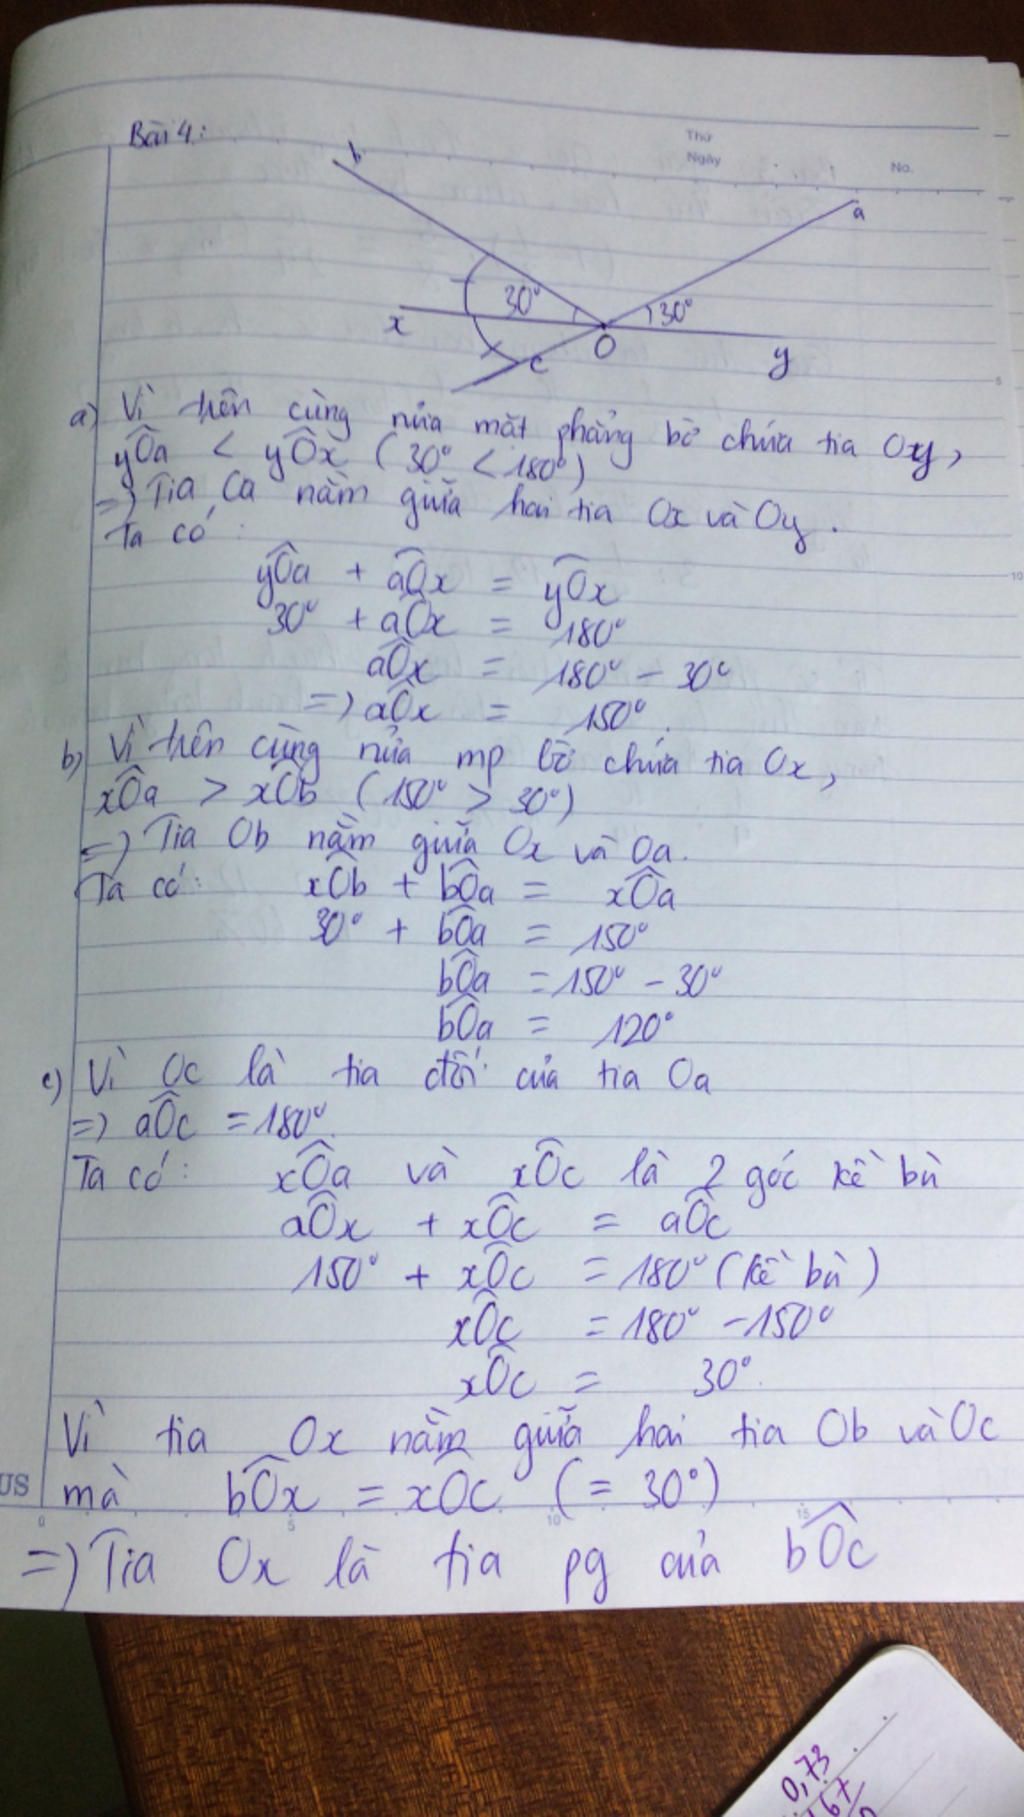 Bài 4:
Thứ
Ngày
No.
b
a
30°
30°
x
O
y
c
a) Vì trên cùng nửa mặt phẳng bờ chứa tia Oxy,
yÔa < yÔx (30° < 180°)
=> Tia Oa nằm giữa hai tia Ox và Oy.
Ta có:
yÔa + aÔx = yÔx
30° + aÔx = 180°
aÔx = 180° - 30°
=> aÔx = 150°.
b) Vì trên cùng nửa mp bờ chứa tia Ox,
xÔa > xÔb (150° > 30°)
=> Tia Ob nằm giữa Ox và Oa.
Ta có: xÔb + bÔa = xÔa
30° + bÔa = 150°
bÔa = 150° - 30°
bÔa = 120°
c) Vì Oc là tia đối của tia Oa
=> aÔc = 180°.
Ta có: xÔa và xÔc là 2 góc kề bù
aÔx + xÔc = aÔc
150° + xÔc = 180° (kề bù)
xÔc = 180° - 150°
xÔc = 30°.
Vì tia Ox nằm giữa hai tia Ob và Oc
US mà bÔx = xÔc (= 30°)
0 5 10 15
=> Tia Ox là tia pg của bÔc
0,73